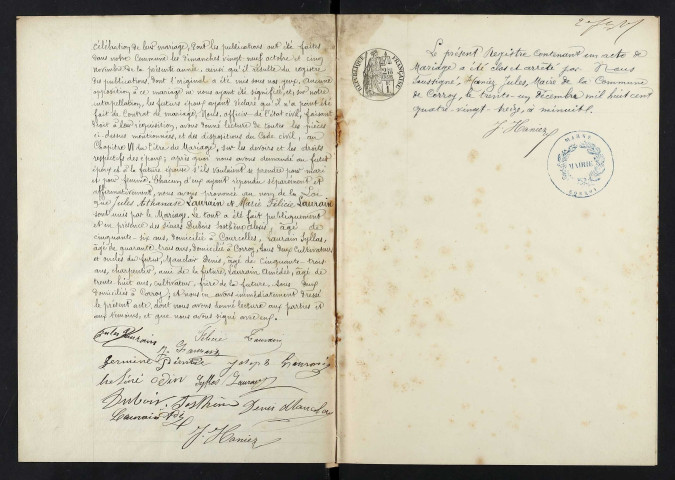 célébration de leur mariage, dont les publications ont été faites
dans notre Commune les dimanches vingt neuf octobre et cinq
novembre de la présente année, ainsi qu'il résulte du registre
de publications, dont l'original a été mis sous nos yeux; Aucune
opposition à ce mariage ne nous ayant été signifiée, et, sur notre
interpellation, les futurs époux ayant déclaré qu'il n'a point été
fait de Contrat de mariage; Nous, officier de l'état civil, faisant
droit à leur réquisition, avons donné lecture de toutes les pièces
ci-dessus mentionnées, et des dispositions du Code civil, au
Chapitre VI du titre du Mariage, sur les devoirs et les droits
respectifs des époux; après quoi nous avons demandé au futur
époux et à la future épouse s'ils voulaient se prendre pour mari
et pour femme. Chacun d'eux ayant répondu séparément et
affirmativement, nous avons prononcé au nom de la Loi
que Jules Athanase Laurain et Marie Félicie Laurain
sont unis par le Mariage. Le tout a été fait publiquement
et en présence des sieurs Dubois Josthène, âgé de
cinquante-six ans, domicilié à Courcelles, Laurain Syllas,
âgé de quarante trois ans, domicilié à Corroy, tous deux Cultivateurs
et oncles du futur, Manclair Denis, âgé de cinquante-trois
ans, charpentier, ami de la future, Laurain Amédée, âgé de
trente huit ans, cultivateur, frère de la future, tous deux
domiciliés à Corroy; et nous en avons immédiatement dressé
le présent acte, dont nous avons donné lecture aux parties et
aux témoins, et que nous avons signé avec eux.
Jules Laurain Félicie Laurain
Laurain
Germine Joseph Laurain
Syllas Laurain
Dubois Josthène Denis
Laurain
J. Hanier
Le présent Registre contenant un acte de
Mariage a été clos et arrêté par Nous
soussigné, Hanier Jules, Maire de la Commune
de Corroy, le trente-un Décembre mil huit cent
quatre-vingt-treize, à minuit.
J. Hanier
RÉPUBLIQUE FRANÇAISE
MARNE
MAIRIE
DE
CORROY